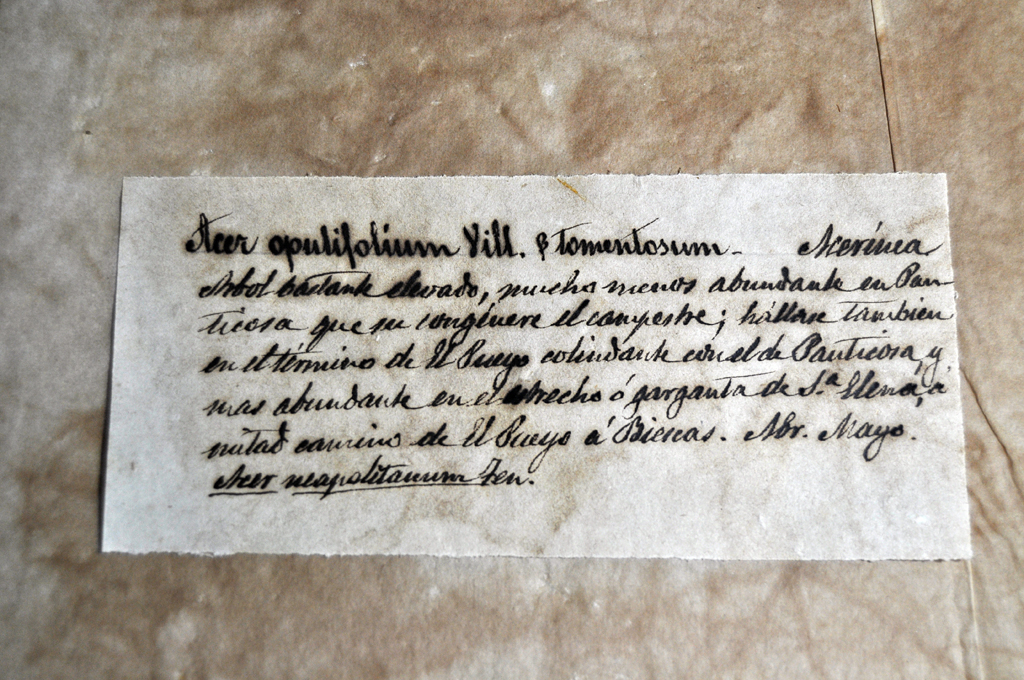 Acer opulifolium Vill. β tomentosum - Acerínea
Arbol bastante elevado, mucho menos abundante en Pan-
ticosa que su congénere el campestre; hállase tambien
en el término de El Pueyo colindante con el de Panticosa, y
mas abundante en el estrecho ó garganta de S.ª Elena, á
mitad camino de El Pueyo á Biescas. Abr. Mayo.
Acer neapolitanum Ten.